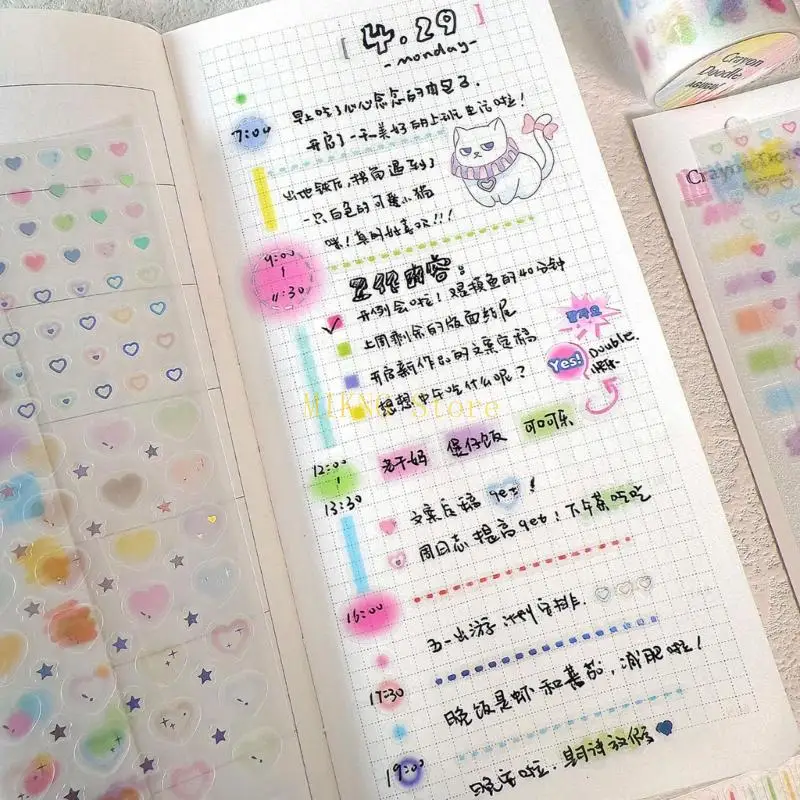 4.29
-monday-
7:00
早上吃了心心念念的肉包了.
开启了一天美好的上班生活啦!
出地铁后,拐角遇到了
一只白色的可爱小猫
咪!真的好喜欢!!!
9:00
11:30
工作内容:
开例会啦!爆摸鱼的40分钟
上周剩余的版面结尾
开启新作品的文案定稿
想想中午吃什么呢?
Yes!
Double
MIKNG Store
老干妈 煲仔饭 可口可乐
12:00
13:30
文案定稿 get!
周日志提高get!下午茶吃吃
16:00
五一出游计划安排.
17:30
晚饭是虾和番茄,减肥啦!
19:00
晚安啦,期待放假
Crayon
Doodle
Crayon Doo